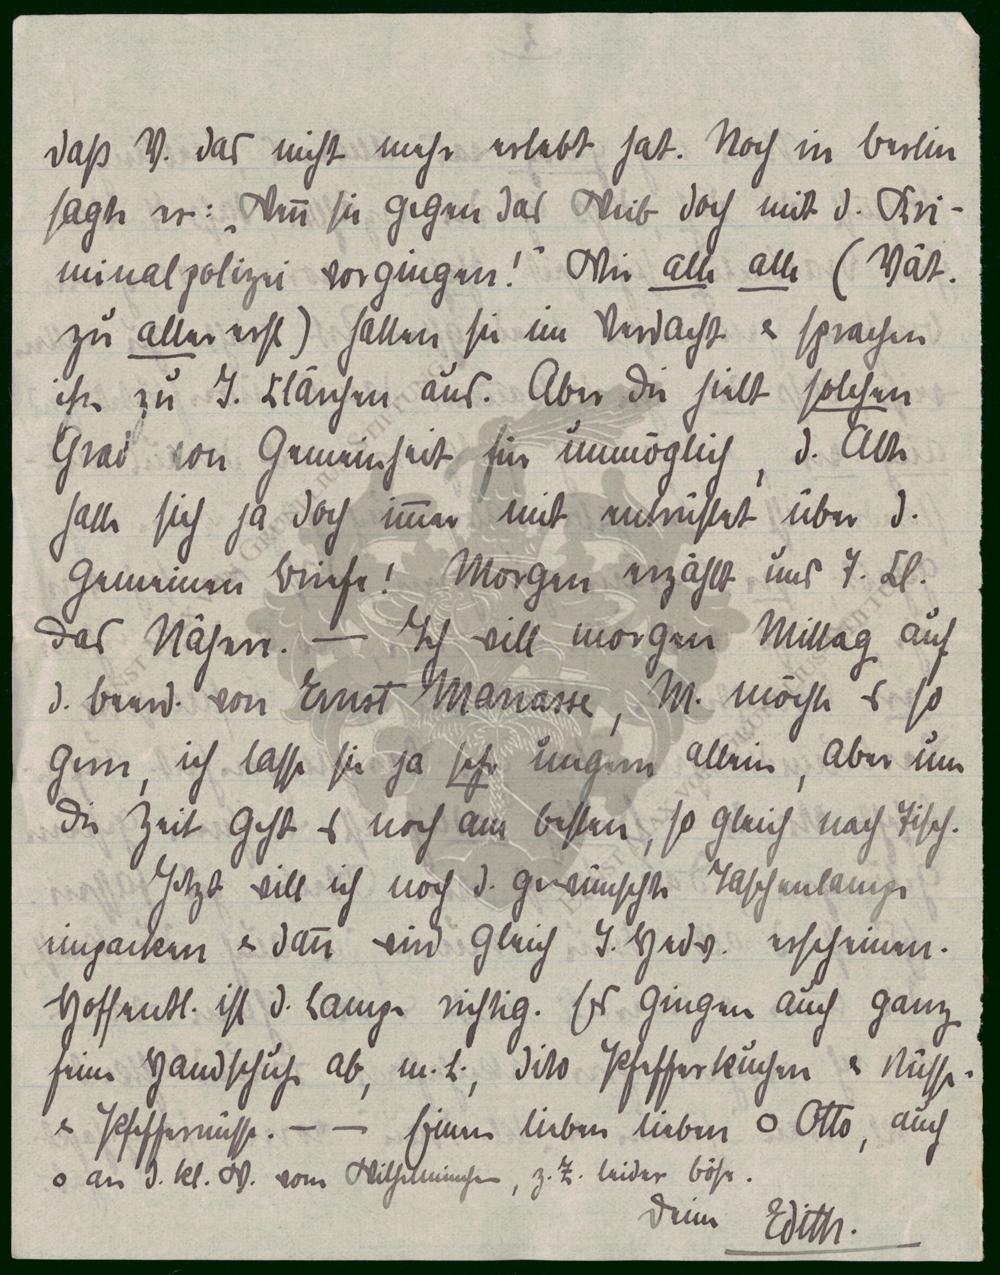 daß V. das nicht mehr erlebt hat. Noch in Berlin
sagte er: „Wenn sie gegen das Weib doch mit d. Kri-
minalpolizei vorgingen!" Wir alle alle (Vät.
zu aller erst) hatten sie im Verdacht & sprachen
es zu T. Klärchen aus. Aber die hielt solchen
Grad von Gemeinheit für unmöglich, d. Alte
hatte sich ja doch immer mit entrüstet über d.
gemeinen Briefe! Morgen erzählt uns T. Kl.
das Nähere. — Ich will morgen Mittag auf
d. Beerd. von Ernst Manasse, M. möchte es so
gern, ich lasse sie ja sehr ungern allein, aber um
die Zeit geht es noch am besten, so gleich nach Tisch.
Jetzt will ich noch d. gewünschte Taschenlampe
einpacken & dann wird gleich T. Hedw. erscheinen.
Hoffentl. ist d. Lampe richtig. Es gingen auch ganz
feine Handschuh ab, m. L., dito Pfefferkuchen & Nüsse.
& Pfeffernüsse. — — Einen lieben lieben o Otto, auch
o an d. kl. W. vom Wilhelminchen, z. Z. leider böse.
Deine Edith.